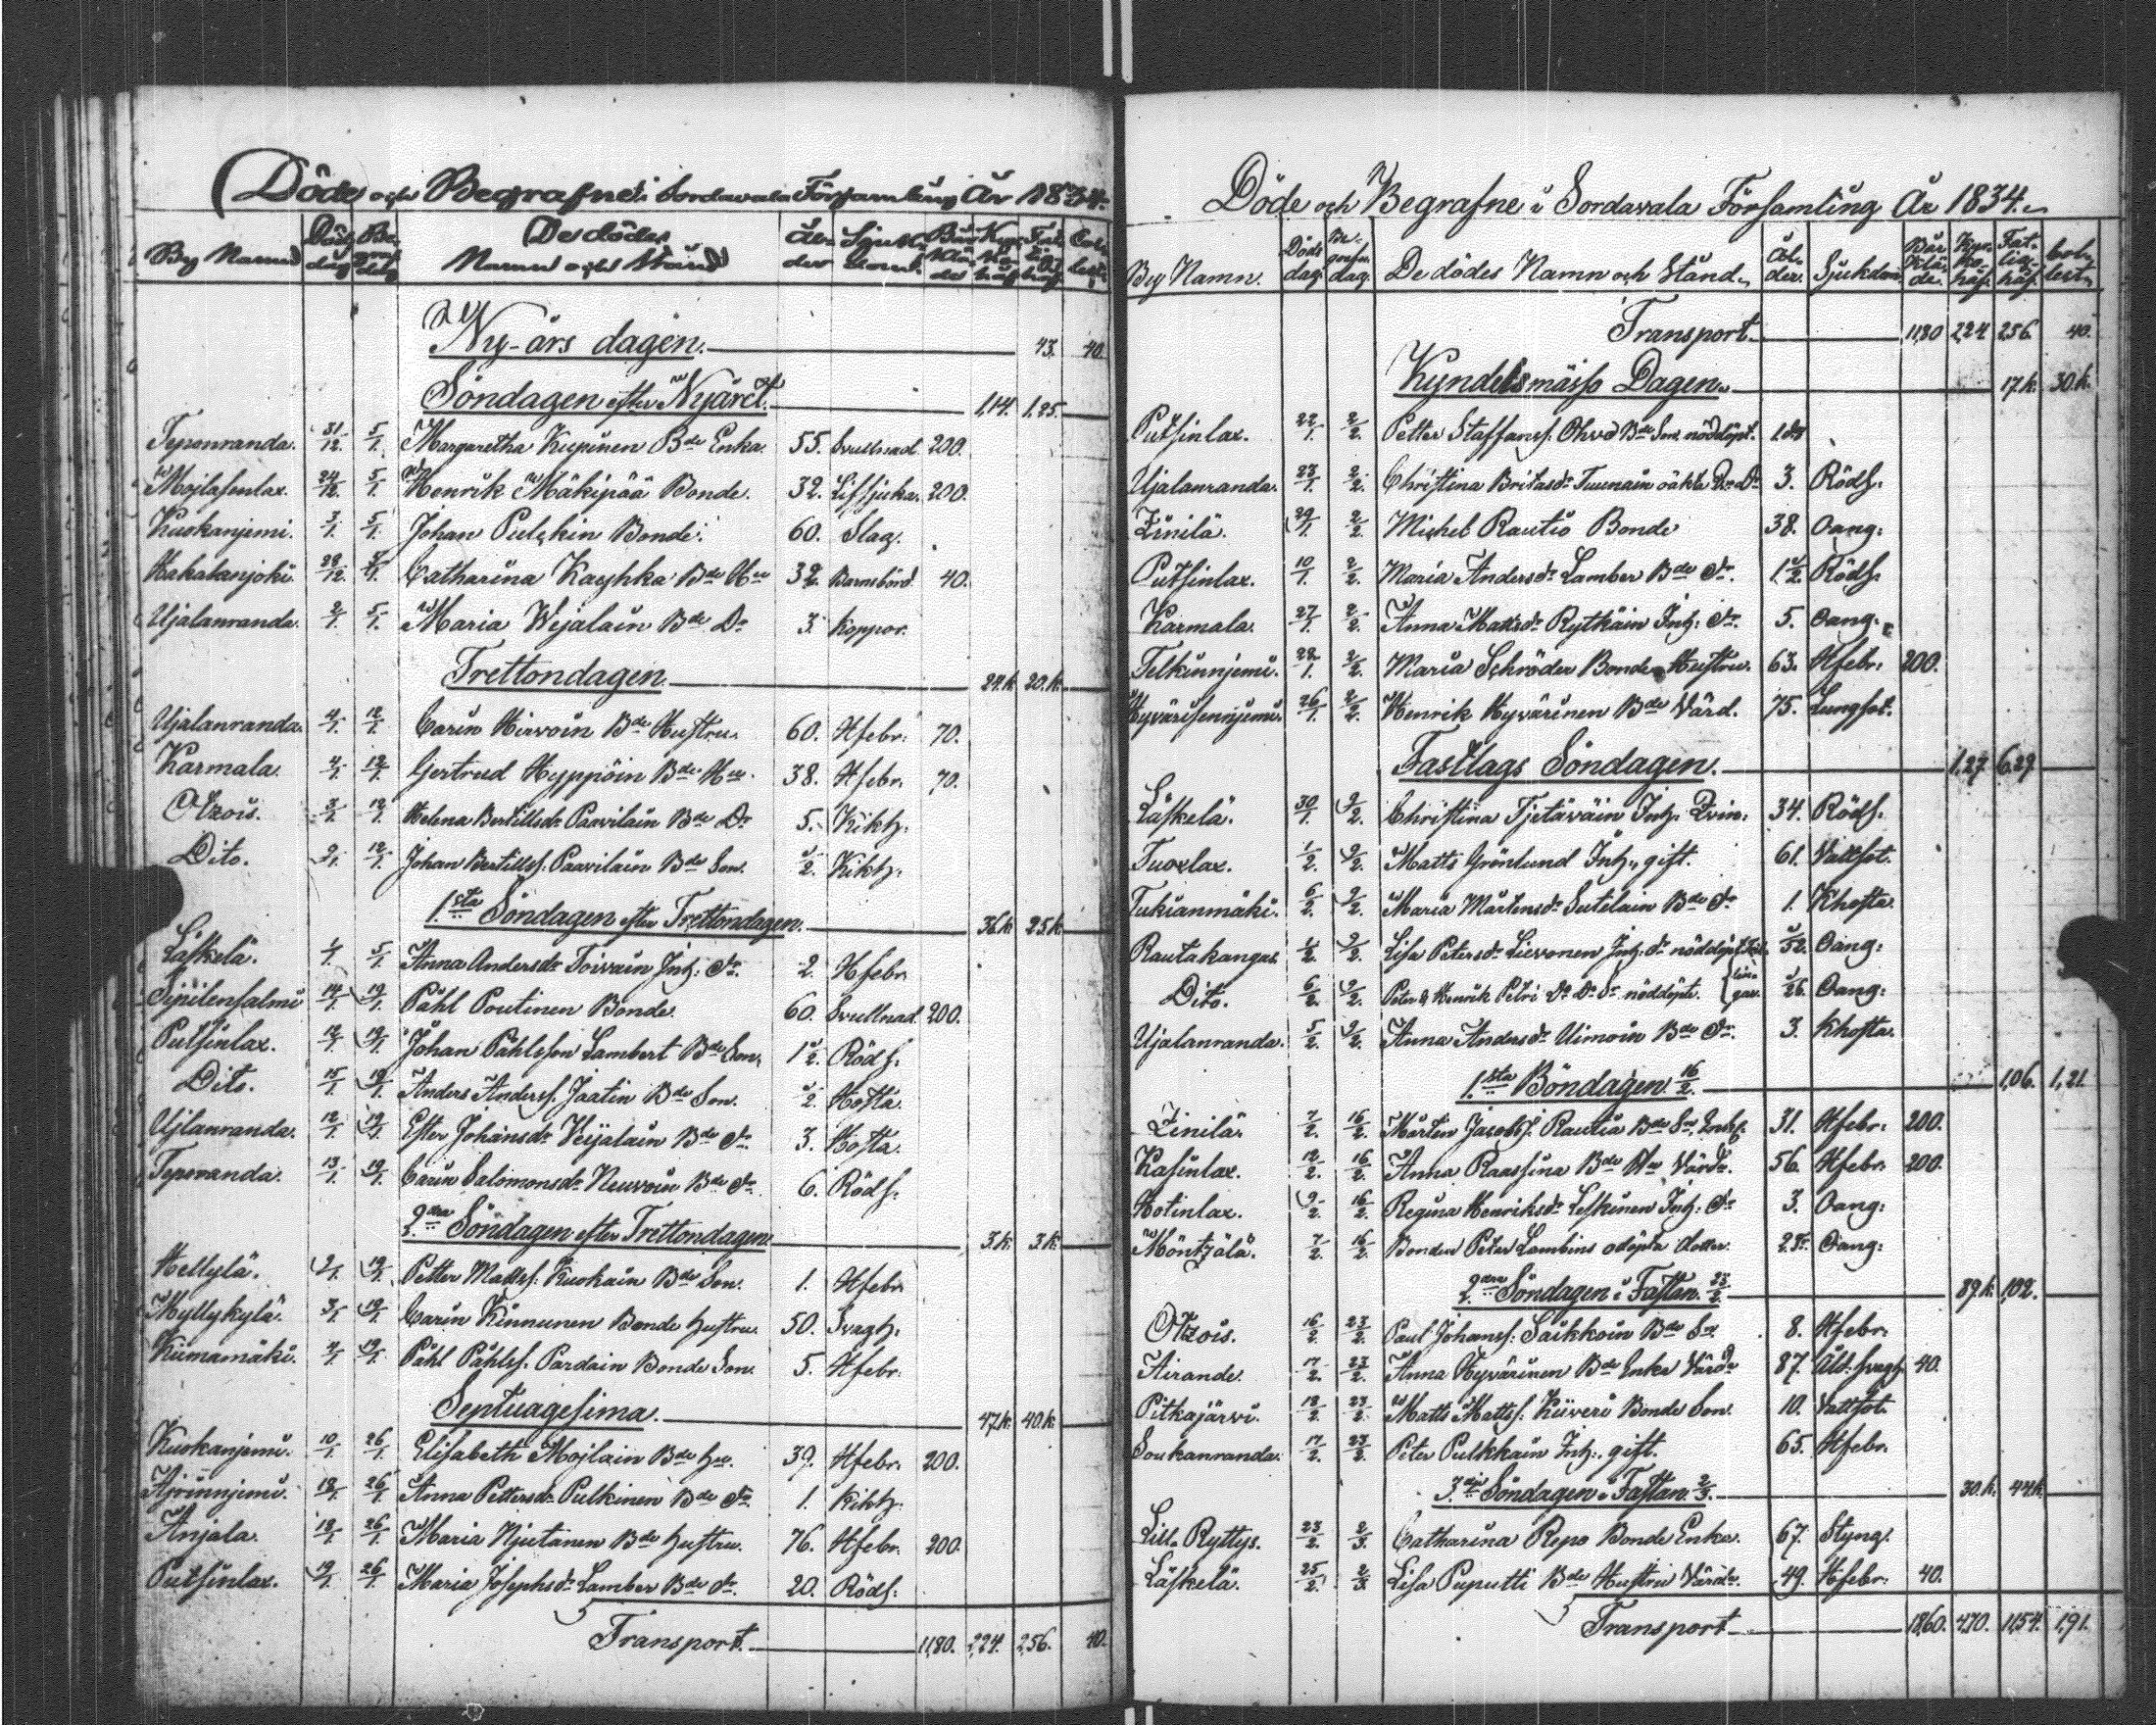 Döde och Begrafne i Sordavala Församling År 1834.
By Namn Döds dag Be graf. dag De dödes Namn och Stånd Ål der Sjuk dom. Bår klä de Kyr ko håf Fat tig håf Col lect.
Ny-års dagen. 43. 40.
Söndagen efter Nyåret. 1,14. 1,25.
Teponranda. 31/12. 5/1. Margaretha Kupinen Bde Enka. 55. Svullnad 200.
Mojlasenlax. 24/12. 5/1. Henrik Mäkipää Bonde. 32. Lifsjuka. 200.
Kuokanjemi. 3/1. 5/1. Johan Pulskin Bonde. 60. Slag.
Hakalanjoki. 28/12. 5/1. Catharina Kayhka Bde Hu 32. Barnsbörd 40.
Ujalanranda. 2/1. 5/1. Maria Wejalain Bde Dr 3. Koppor.
Trettondagen 24.k 20.k.
Ujalanranda. 4/1. 12/1. Carin Hirvoin Bde Hustru. 60. Hfebr: 70.
Karmala. 4/1. 12/1. Gertrud Hyppöin Bde Hu. 38. Hfebr. 70.
Otzois. 3/1. 12/1. Helena Bertillsdr Paavilain Bde Dr 5. Kikh:
Dito. 9/1. 12/1. Johan Bertillss. Paavilain Bde Son. 1/2. Kikh:
1.sta Söndagen efter Trettondagen. 36.k. 25.k.
Läskelä. 1/1. 5/1. Anna Andersdr Toivain Inh: dr. 2. Hfebr.
Sipilensalmi 14/1. 19/1. Påhl Poutinen Bonde. 60. Svullnad. 200.
Putsinlax. 12/1. 19/1. Johan Påhlsson Lambert Bde Son. 1 1/2. Röds.
Dito. 15/1. 19/1. Anders Anderss. Jaatin Bde Son. 1/2. Hosta.
Ujlanranda. 12/1. 19/1. Ester Johansdr Veijalain Bde dr 3. Hosta.
Teporanda. 13/1. 19/1. Carin Salomonsdr Neuvoin Bde dr. 6. Röds.
2.dra Söndagen efter Trettondagen 3.k. 3.k.
Hellylä. 9/1. 19/1. Petter Matss. Kuokain Bde Son. 1. Hfebr.
Myllykylä. 3/1. 19/1. Carin Kinnunen Bonde hustru. 50. Svagh.
Kiimamäki. 4/1. 19/1. Påhl Påhlss. Pardain Bonde Son. 5. Hfebr.
Septuagesima. 47.k. 40.k.
Kuokanjemi. 10/1. 26/1. Elisabeth Mojlain Bde hu. 39. Hfebr. 200.
Ajrinnjemi. 18/1. 26/1. Anna Pettersdr Pulkinen Bde dr. 1. Kikh:
Anjala. 18/1. 26/1. Maria Hjutanen Bde hustru. 76. Hfebr. 200.
Putsinlax. 19/1. 26/1. Maria Josephsdr Lamber Bde dr. 20. Röds.
Transport. 1180. 2,24. 2,56. 40.
Döde och Begrafne i Sordavala Församling År 1834.
By Namn. Döds dag. Be grafn. dag. De dödes Namn och Stånd. Ål der. Sjukdom. Bår klä de. Kyr ko håf. Fat tig håf. Col lect.
Transport. 1180 2,24 2,56. 40.
Kyndelsmässo Dagen. 17.k. 30.k.
Putsinlax. 22/1. 2/2. Petter Staffanss. Ohvo Bde Son. nöddöpt.
Ujalanranda. 23/1. 2/2. Christina Britasdr Tuunain oäkta 3. Röds.
Zinilä. 29/1. 2/2. Michel Rautio Bonde 38. Oang:
Putsinlax. 10/1. 2/2. Maria Andersdr Lamber Bde dr. 1 1/2. Röds.
Karmala. 27/1. 2/2. Anna Mattsdr Rytkäin Inh: dr. 5. Oang.
Telkinnjemi. 28/1. 2/2. Maria Schröder Bonde Hustru. 63. Hfebr. 200.
Hyvärisennjemi. 26/1. 2/2. Henrik Hyvärinen Bde Värd. 75. Lungsot.
Fastlags Söndagen. 1,27. 6,27.
Läskelä. 30/1. 9/2. Christina Tjetäväin Inh. Qvin. 34. Röds.
Tuoxlax. 1/2. 9/2. Matts Grönlund Inh., gift. 61. Vattsot.
Tukianmäki. 6/2. 9/2. Maria Mårtensdr Sutelain Bde dr 1. Khosta.
Rautakangas. 1/2. 9/2. Lisa Petersdr Lievonen Inh: dr nöddöpt 1/52. Oang:
Dito. 6/2. 9/2. Peter & Henrik Petri nöddöpte. tvillingar. 1/26. Oang:
Ujalanranda. 5/2. 9/2. Anna Andersdr Uimoin Bde dr. 3. Khosta.
1.sta Böndagen 16/2. 1,06. 1,21.
Zinilä. 7/2. 16/2. Mårten Jacobss. Rautia Bde Son 31. Hfebr: 200.
Kasinlax. 12/2. 16/2. Anna Raassina Bde Hu Värd. 56. Hfebr. 200.
Hotinlax. 9/2. 16/2. Regina Henriksdr Leskinen Inh: dr 3. Oang:
Möntzälä. 7/2. 16/2. Bonden Peter Lambins odöpta dotter. Oang:
2.dra Söndagen i Fastan. 23/2. 89.k. 1,02.
Otzois. 16/2. 23/2. Paul Johanss. Saikkoin Bde Son 8. Hfebr.
Airande. 17/2. 23/2. Anna Hyvärinen Bde Enka Värd 87. Åld. svagh 40.
Pitkajärvi. 18/2. 23/2. Matts Mattss. Kiiveri Bonde Son. 10. Vattsot.
Soukanranda. 17/2. 23/2. Peter Pulkkain Inh:. gift. 65. Hfebr.
3.die Söndagen i Fastan. 2/3. 30.k. 44.k.
Lill. Ryttys. 23/2. 2/3. Catharina Repo Bonde Enka. 67. Styng.
Läskelä. 25/2. 2/3. Lisa Puputti Bde Hustru Värd. 49. Hfebr: 40.
Transport 1860. 4,70. 11,54. 1,91.